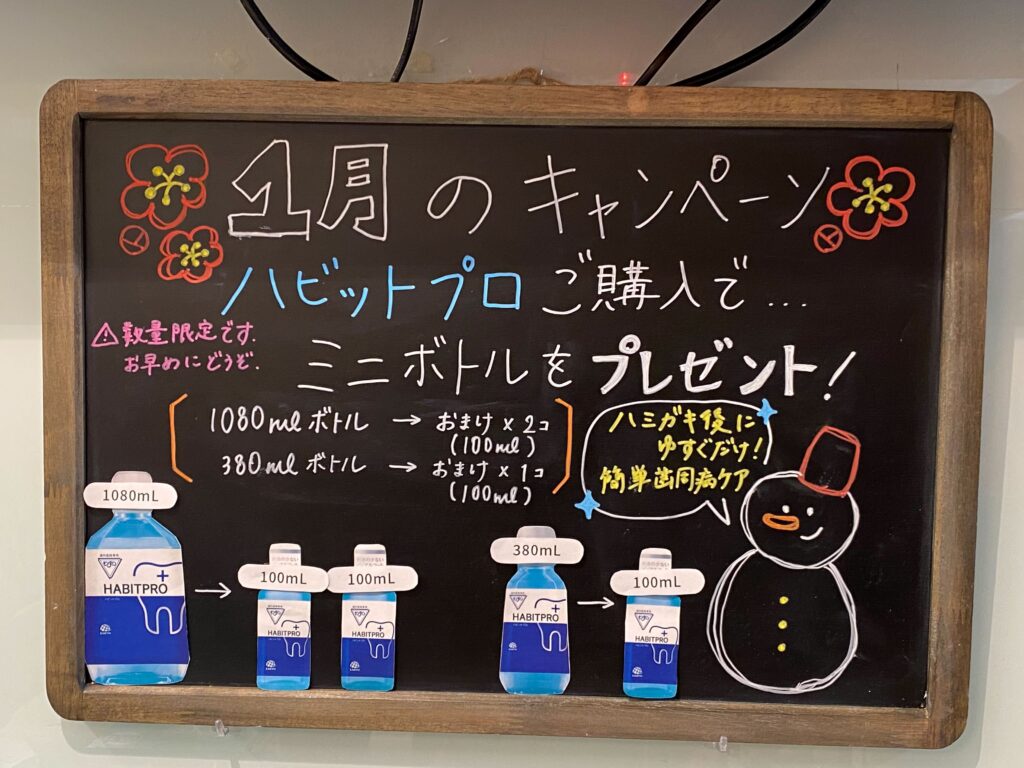 1月のキャンペーン
ハビットプロ ご購入で...
⚠数量限定です.
お早めにどうぞ.
ミニボトルをプレゼント!
1080mlボトル → おまけ×2コ
(100ml)
380mlボトル → おまけ×1コ
(100ml)
ハミガキ後に
ゆすぐだけ!
簡単歯周病ケア
1080mL
HABITPRO
→
100mL
HABITPRO
100mL
HABITPRO
380mL
HABITPRO
→
100mL
HABITPRO